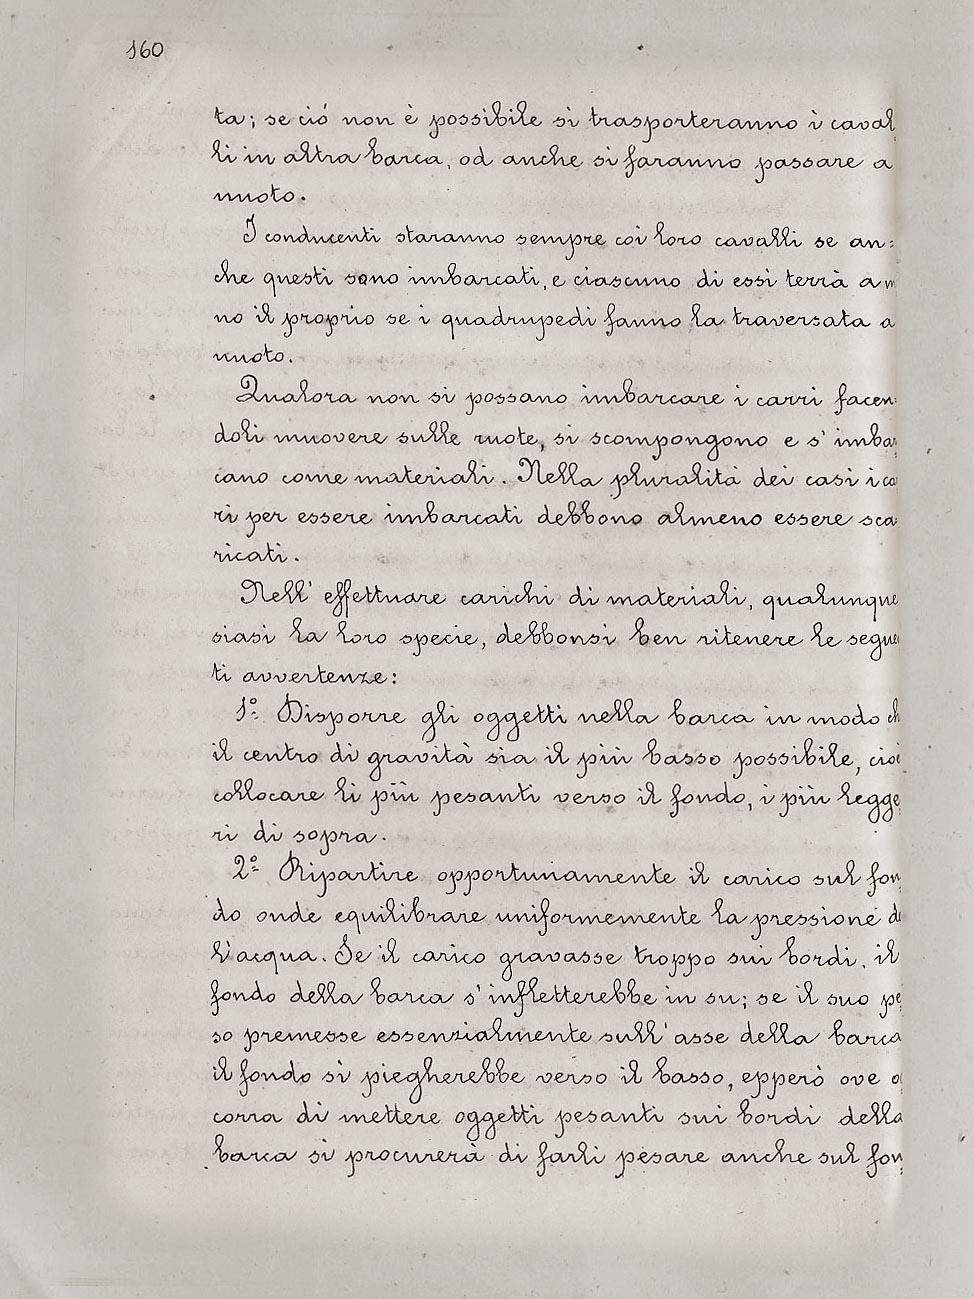 160
ta; se ciò non è possibile si trasporteranno i caval
li in altra barca, od anche si faranno passare a
nuoto.
I conducenti staranno sempre coi loro cavalli se an:
che questi sono imbarcati, e ciascuno di essi terrà a m
no il proprio se i quadrupedi fanno la traversata a
nuoto.
Qualora non si possano imbarcare i carri facen:
doli muovere sulle ruote, si scompongono e s' imba
cano come materiali. Nella pluralità dei casi i ca
ri per essere imbarcati debbono almeno essere sca
ricati.
Nell' effettuare carichi di materiali, qualunque
siasi la loro specie, debbonsi ben ritenere le segue
ti avvertenze:
1º Disporre gli oggetti nella barca in modo ch
il centro di gravità sia il più basso possibile, cioè
collocare li più pesanti verso il fondo, i più legge
ri di sopra.
2º Ripartire opportunamente il carico sul fon
do onde equilibrare uniformemente la pressione de
l'acqua. Se il carico gravasse troppo sui bordi, il
fondo della barca s' infletterebbe in su; se il suo pe
so premesse essenzialmente sull' asse della barca
il fondo si piegherebbe verso il basso, epperò ove o
corra di mettere oggetti pesanti sui bordi della
barca si procurerà di farli pesare anche sul fon